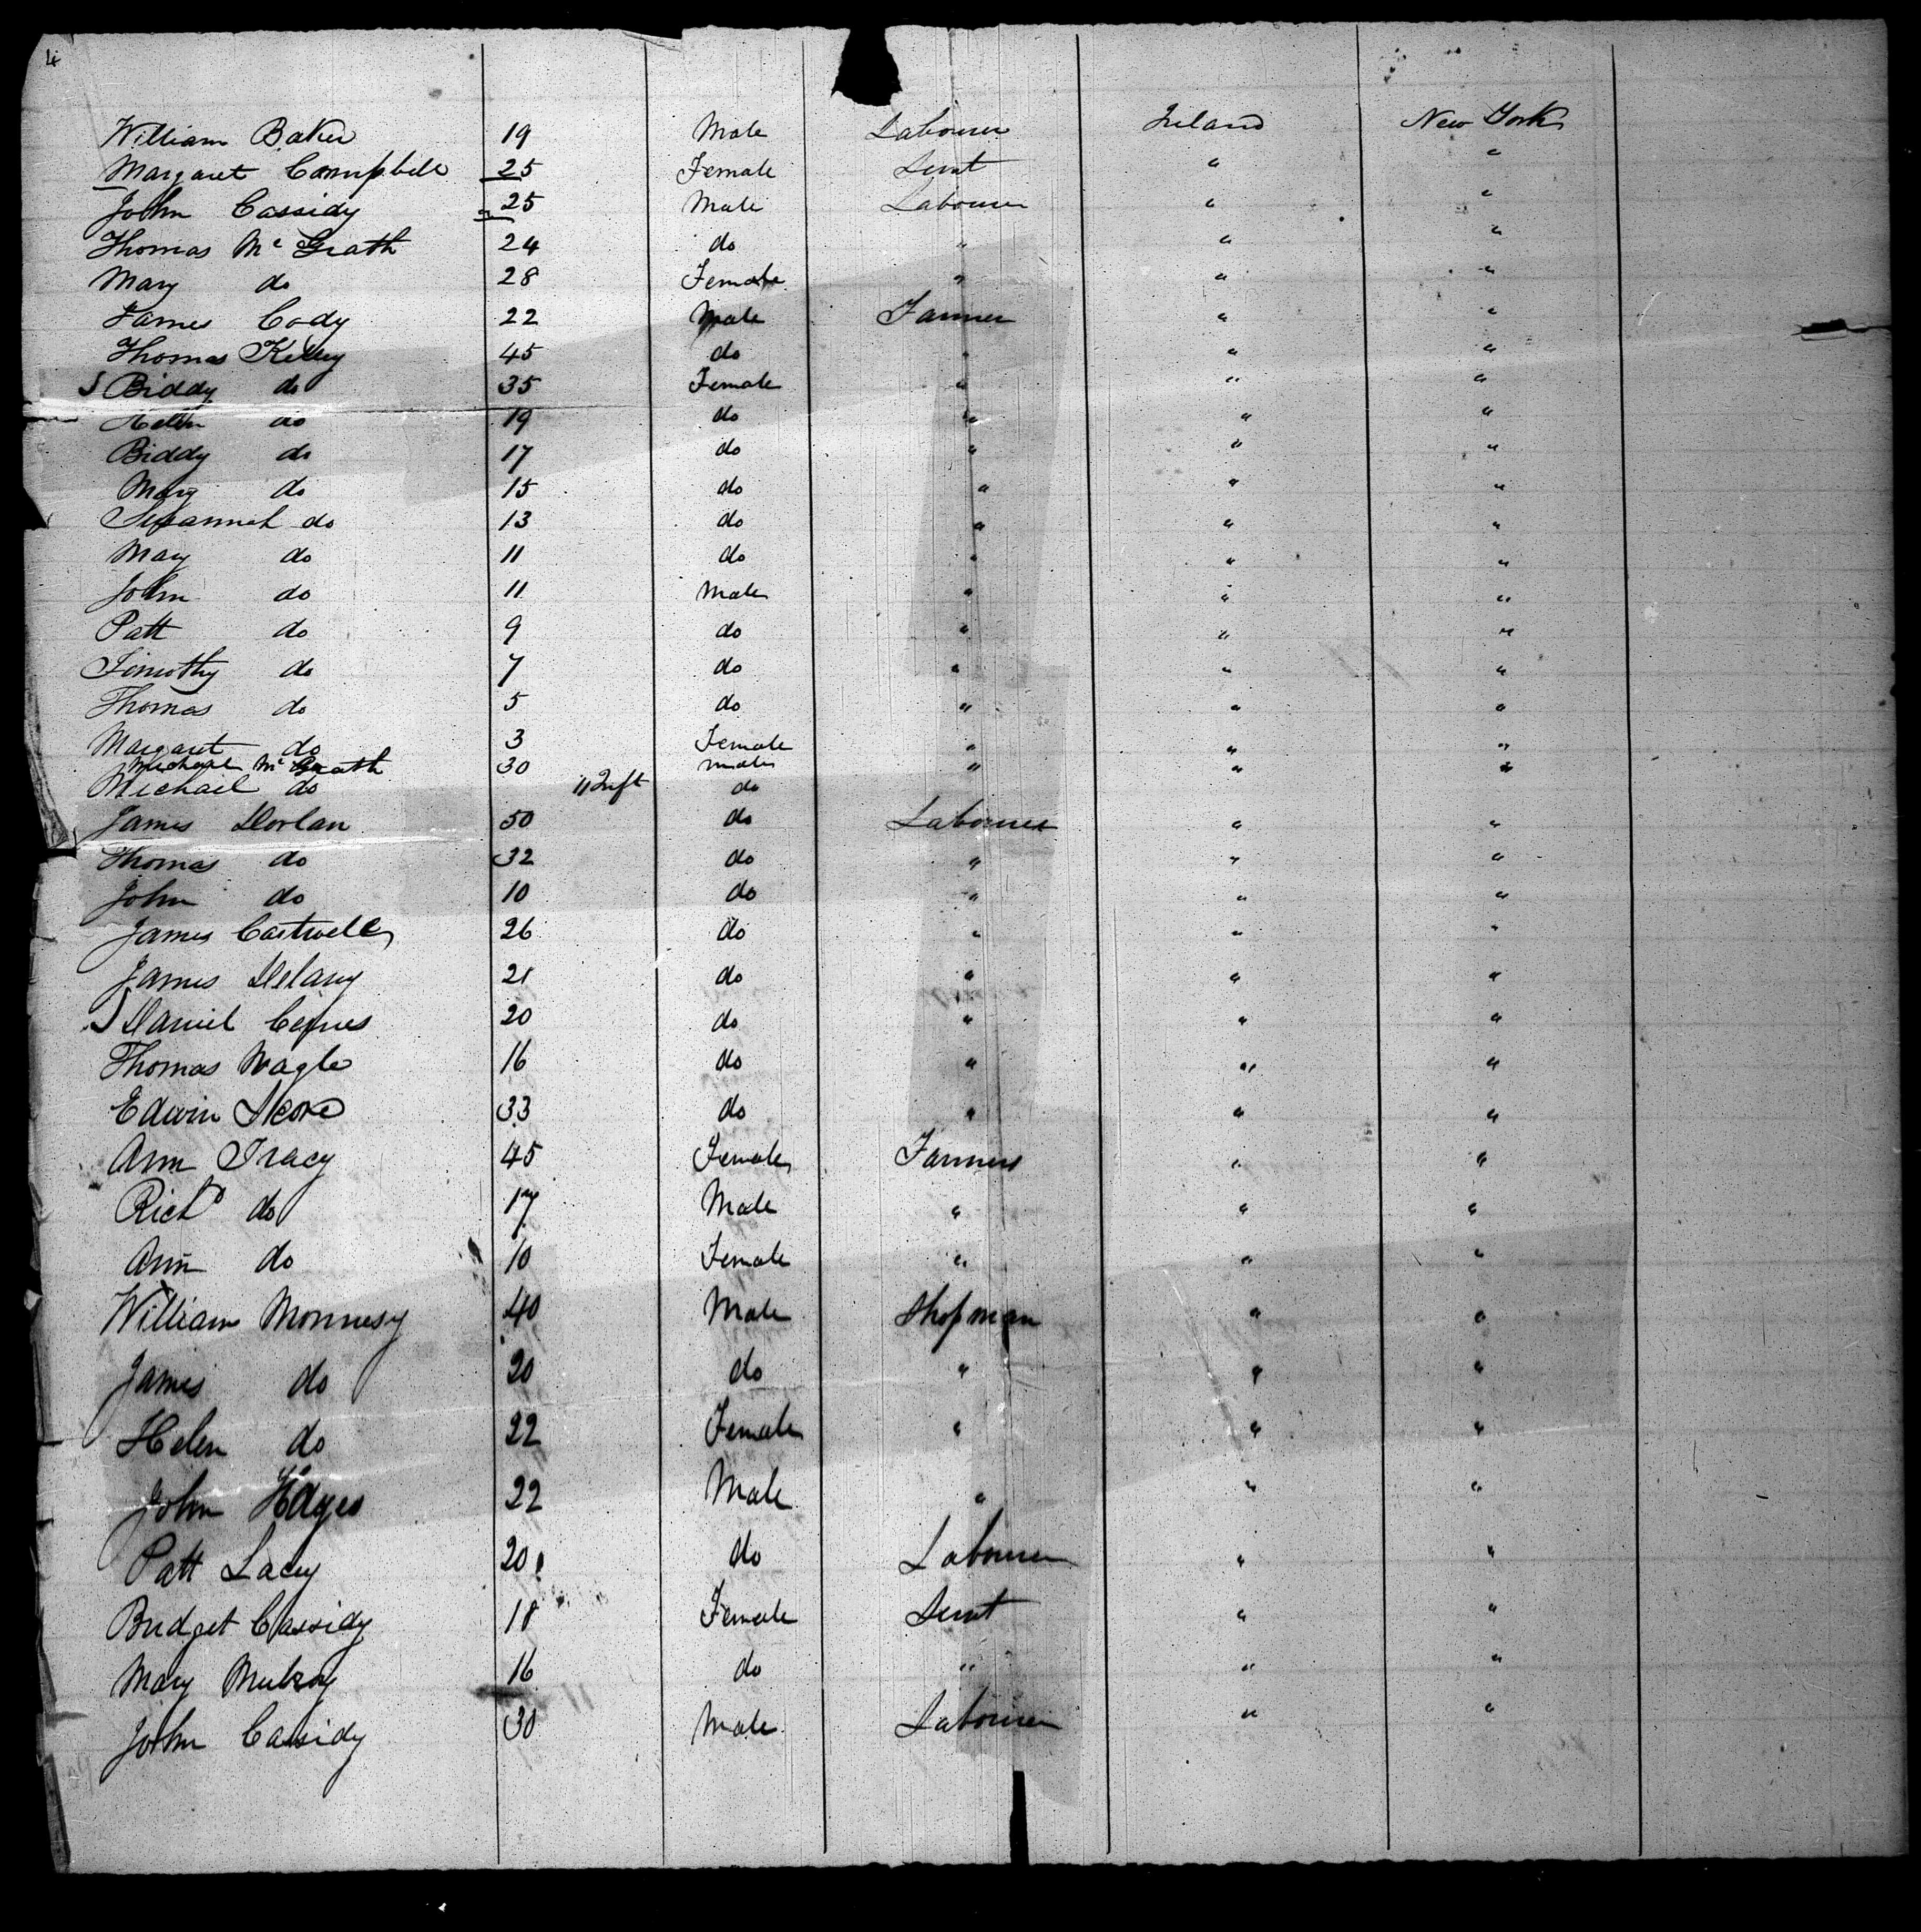 4
William Baker 19 Male Labourer Ireland New York
Margaret Campbell 25 Female Servt " "
John Cassidy 25 Male Labourer " "
Thomas Mc Grath 24 do " " "
Mary do 28 Female " " "
James Cody 22 Male Farmer " "
Thomas Kelly 45 do " " "
Biddy do 35 Female " " "
Hellen do 19 do " " "
Biddy do 17 do " " "
Mary do 15 do " " "
Susannah do 13 do " " "
Mary do 11 do " " "
John do 11 Male " " "
Patt do 9 do " " "
Timothy do 7 do " " "
Thomas do 5 do " " "
Margaret do 3 Female " " "
Michael Mc Grath 30 Male " " "
Michael do 11 Inft do
James Dorlan 50 do Labourer " "
Thomas do 32 do " " "
John do 10 do " " "
James Cartwell 26 do " " "
James Delany 21 do " " "
Daniel 20 do " " "
Thomas Nagle 16 do " " "
Edwin 33 do " " "
Ann Tracy 45 Female Farmers " "
Richd do 17 Male " " "
Ann do 10 Female " " "
William Monnesy 40 Male Shopman " "
James do 20 do " " "
Helen do 22 Female " " "
John Hayes 22 Male " " "
Patt Lacey 20 do Labourer " "
Bridget Cassidy 18 Female Servt " "
Mary 16 do " " "
John Cassidy 30 Male Labourer " "